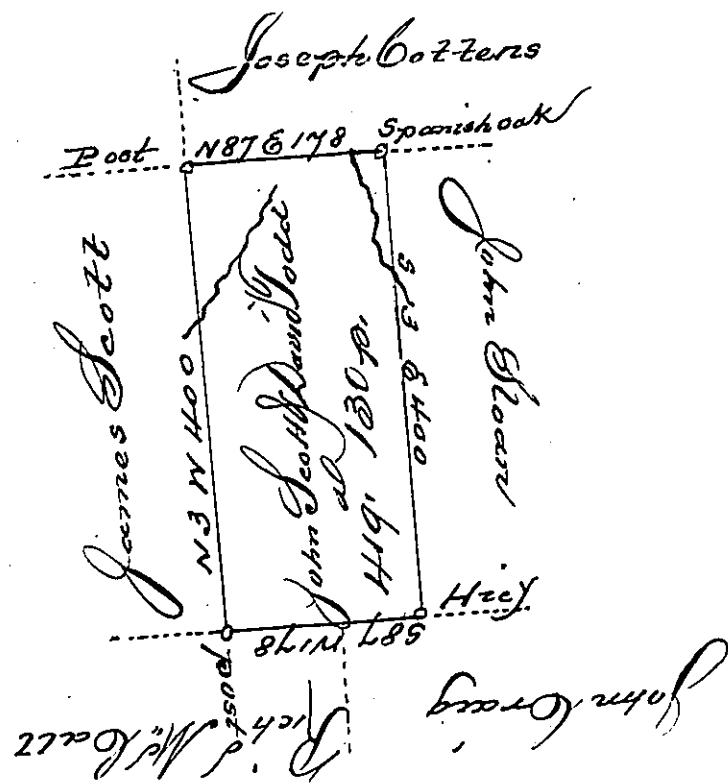 Joseph Cottens
Post
N87E178
Spanish oak
James Scott
N3W400
John Scott & David Todd
a
419. 130 p.
S3E400
John Sloan
Hicy
S87W178
post
Richd McCalt
John Craig